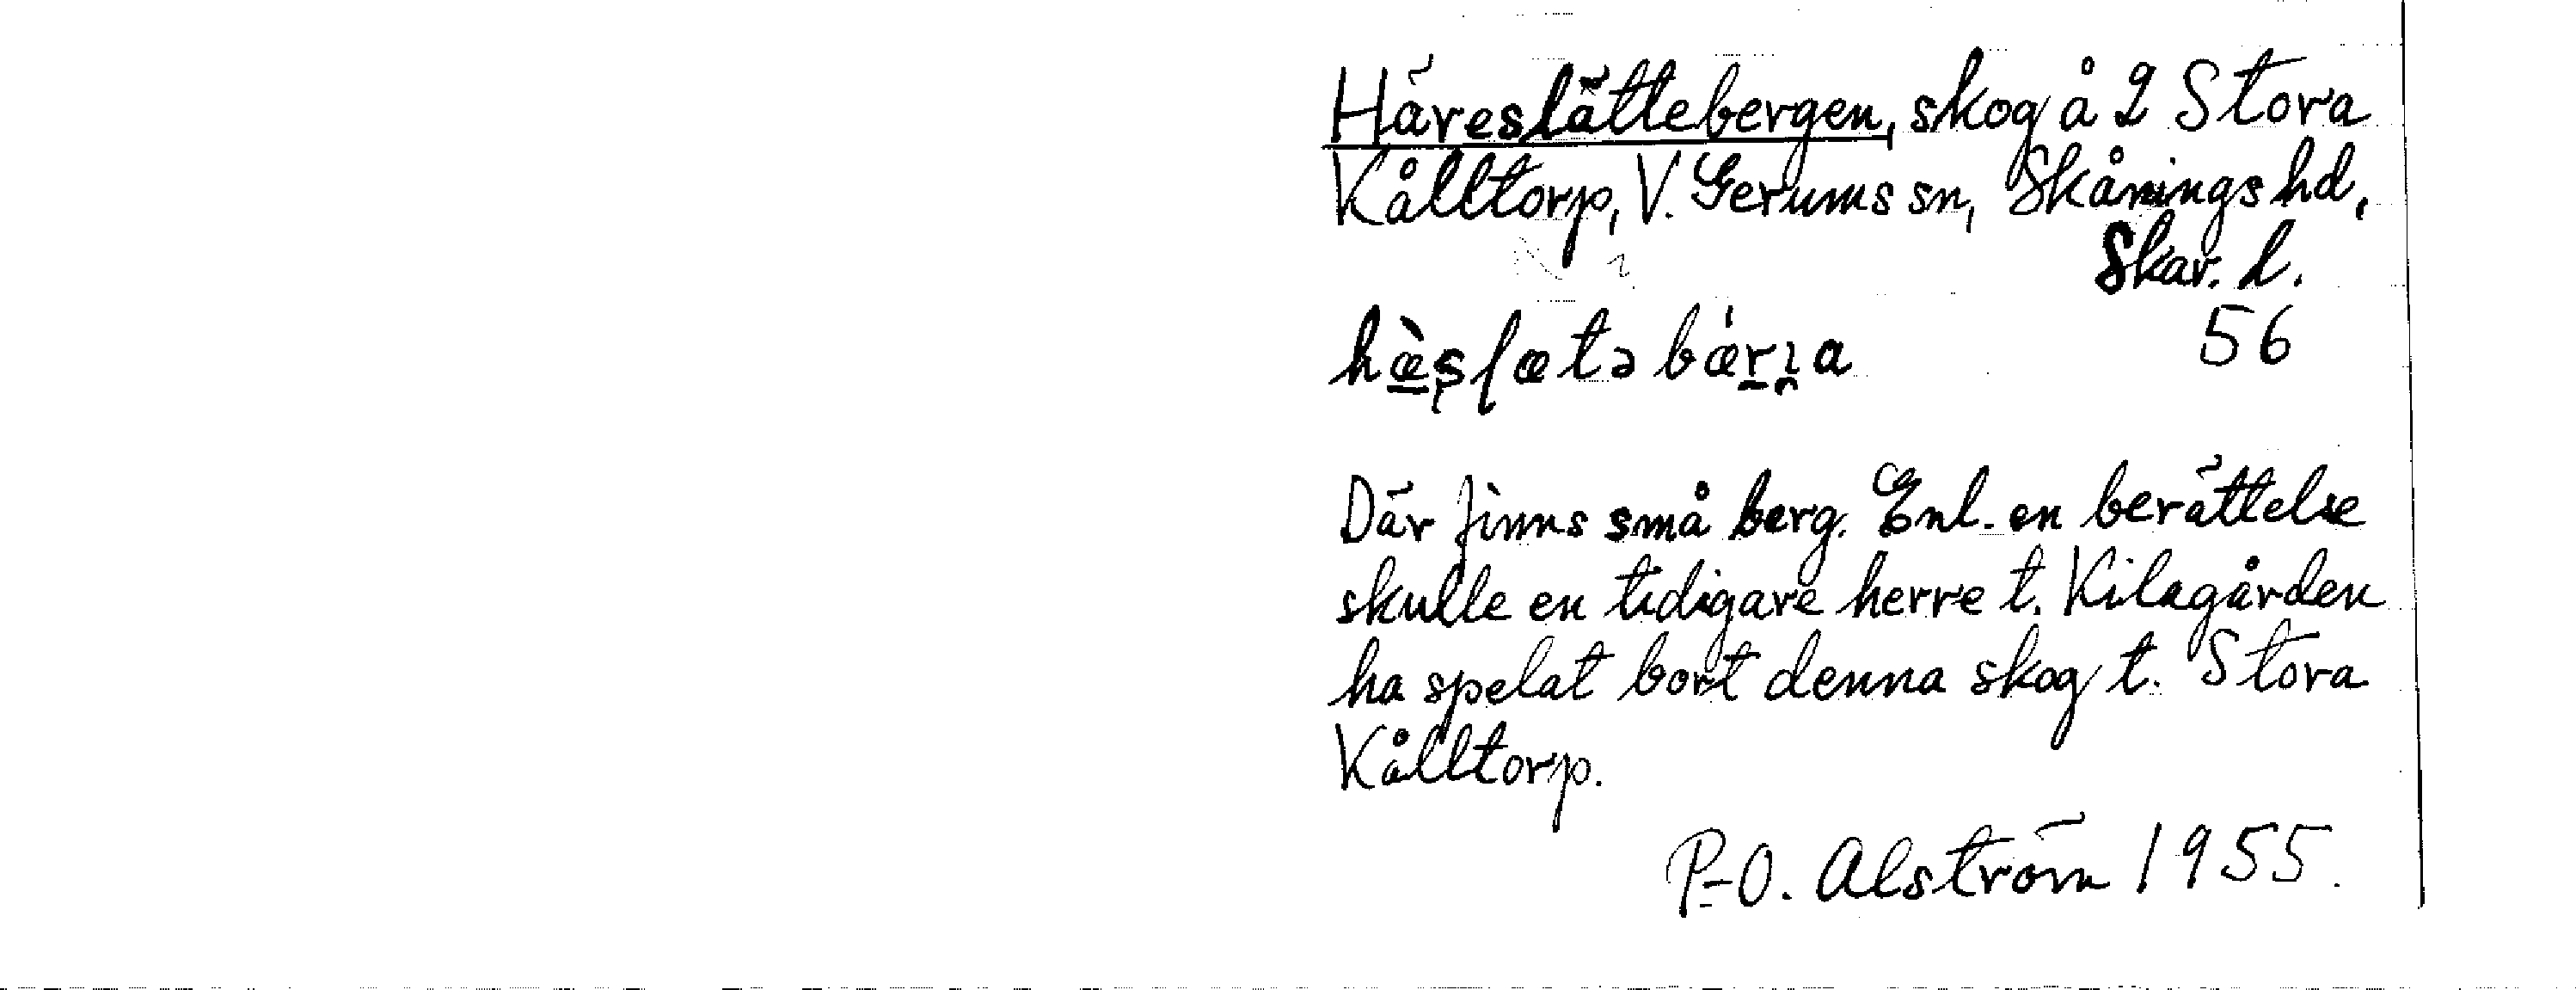 Häreslättebergen, skog å 2 Stora
Kålltorp, V. Gerums sn, Skånings hd,
Skar. l.
hæ̀s̨ſætə bǽrı̨a 56
Där finns små berg. Enl. en berättelse
skulle en tidigare herre t. Kilagården
ha spelat bort denna skog t. Stora
Kålltorp.
P-O. Alström 1955.